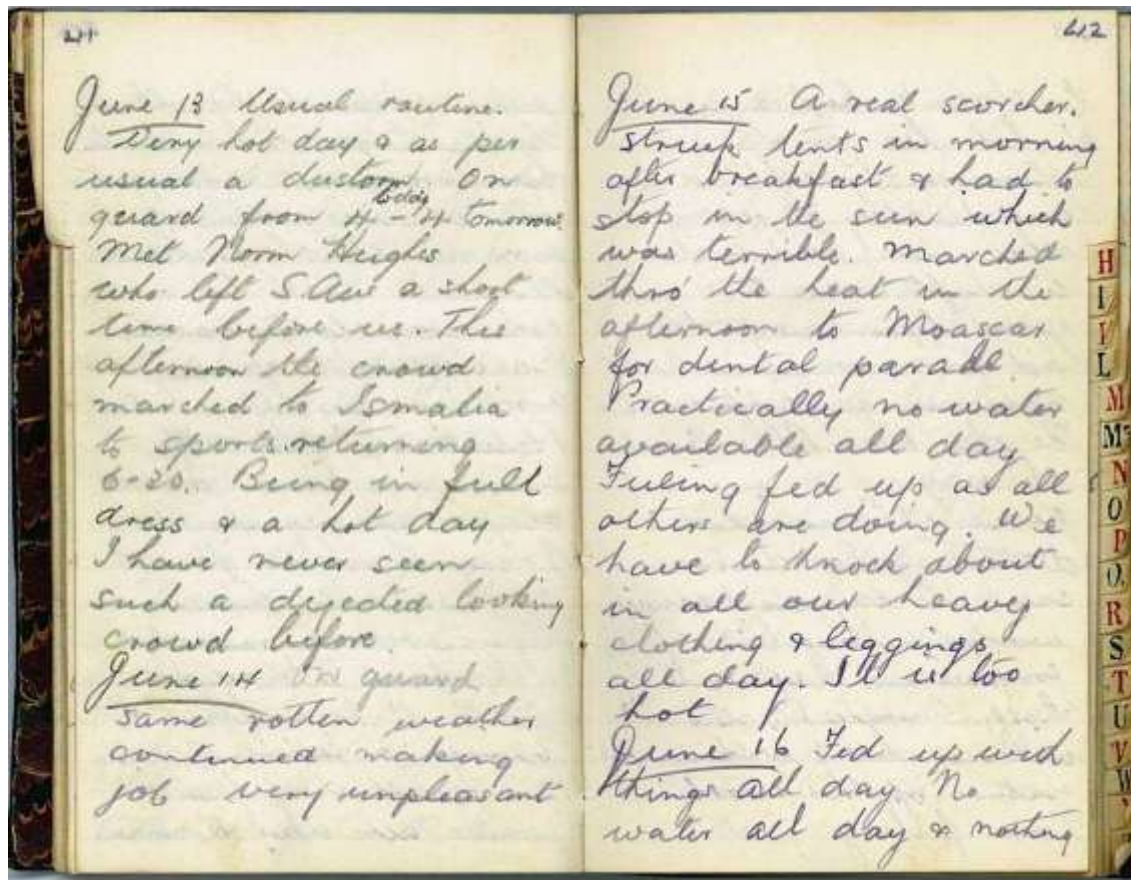 41
June 13 Usual routine.
Very hot day & as per
usual a dustorm. On
guard from 4 today - 4 tomorrow.
Met Norm Hughes
who left S. Aus a short
time before us. This
afternoon the crowd
marched to Ismalia
to sports returning
6-30. Being in full
dress & a hot day
I have never seen
such a dejected looking
crowd before.
June 14 On guard
same rotten weather
continued making
job very unpleasant
42
June 15 A real scorcher.
Struck tents in morning
after breakfast & had to
stop in the sun which
was terrible. Marched
thro' the heat in the
afternoon to Moascar
for dental parade.
Practically no water
available all day
Feeling fed up as all
others are doing. We
have to knock about
in all our heavy
clothing & leggings
all day. It is too
hot
June 16 Fed up with
things all day No
water all day & nothing
H
I
L
M
Mc
N
O
P
Q
R
S
T
U
V
W